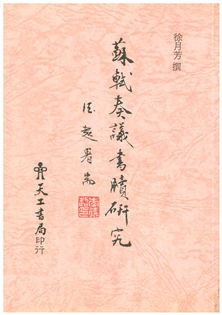 徐月芳 撰
蘇軾奏議書牘研究
天工書局印行